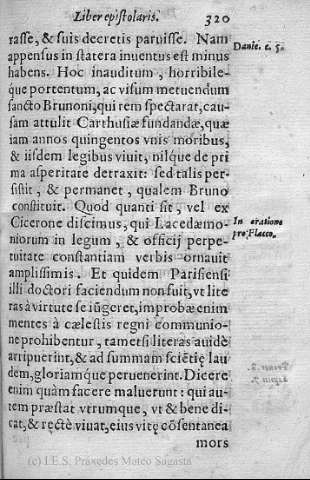 Liber epistolaris. 320
rasse, & suis decretis paruisse. Nam
appensus in statera inuentus est minus
Danie. c. 5.
habens. Hoc inauditum, horribile-
que portentum, ac visum metuendum
sancto Brunoni, qui rem spectarat, cau-
sam attulit Carthusiæ fundandæ, quæ
iam annos quingentos vnis moribus,
& iisdem legibus viuit, nilque de pri
ma asperitate detraxit: sed talis per-
sistit, & permanet, qualem Bruno
constituit. Quod quanti sit, vel ex
Cicerone discimus, qui Lacedæmo-
In oratione
niorum in legum, & officij perpe-
pro Flacco.
tuitate constantiam verbis ornauit
amplissimis. Et quidem Parisiensi
illi doctori faciendum non fuit, vt lite
ras à virtute se iũgeret, improbæ enim
mentes à cælestis regni communio-
ne prohibentur, tametsi literas auidè
arripuerint, & ad summam sciẽtię lau
dem, gloriamq́ue peruenerint. Dicere
enim quàm facere maluerunt: qui au-
tem præstat vtrumque, vt & bene di-
cat, & rectè viuat, eius vitę cõsentanea
mors
(c) I.E.S. Práxedes Mateo Sagasta